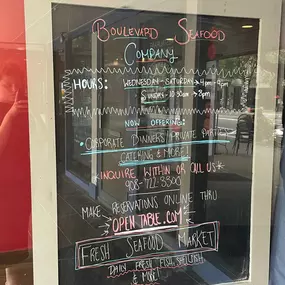 BOULEVARD SEAFOOD
COMPANY
HOURS: WEDNESDAY - SATURDAY → 4pm - 9pm
SUNDAYS - 10:30am → 2pm
NOW OFFERING:
• CORPORATE DINNERS, PRIVATE PARTIES
CATERING & MORE!
*INQUIRE WITHIN OR CALL US*
908-722-3500
MAKE RESERVATIONS ONLINE THRU
OPEN TABLE.COM
FRESH SEAFOOD MARKET
DAILY FRESH FISH, SHELLFISH
& MORE!